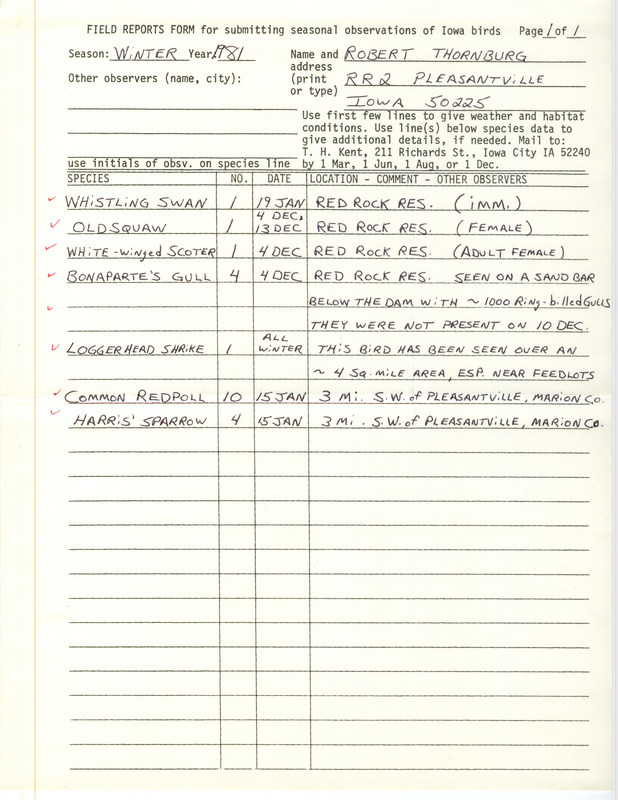 FIELD REPORTS FORM for submitting seasonal observations of Iowa birds Page 1 of 1
Season: WINTER Year 1981 Name and ROBERT THORNBURG
address
Other observers (name, city): (print RR2 PLEASANTVILLE
or type)
IOWA 50225
Use first few lines to give weather and habitat
conditions. Use line(s) below species data to
give additional details, if needed. Mail to:
T. H. Kent, 211 Richards St., Iowa City IA 52240
use initials of obsv. on species line by 1 Mar, 1 Jun, 1 Aug, or 1 Dec.
SPECIES NO. DATE LOCATION - COMMENT - OTHER OBSERVERS
✓ WHISTLING SWAN 1 19 JAN RED ROCK RES. (IMM.)
4 DEC,
✓ OLDSQUAW 1 13 DEC RED ROCK RES. (FEMALE)
✓ WHITE-WINGED SCOTER 1 4 DEC RED ROCK RES. (ADULT FEMALE)
✓ BONAPARTE'S GULL 4 4 DEC RED ROCK RES. SEEN ON A SAND BAR
✓ BELOW THE DAM WITH ~ 1000 Ring-billed GULLS
THEY WERE NOT PRESENT ON 10 DEC.
ALL
✓ LOGGERHEAD SHRIKE 1 WINTER THIS BIRD HAS BEEN SEEN OVER AN
~ 4 SQ. MILE AREA, ESP. NEAR FEEDLOTS
✓ COMMON REDPOLL 10 15 JAN 3 MI. S.W. of PLEASANTVILLE, MARION CO.
✓ HARRIS' SPARROW 4 15 JAN 3 MI. S.W. of PLEASANTVILLE, MARION CO.